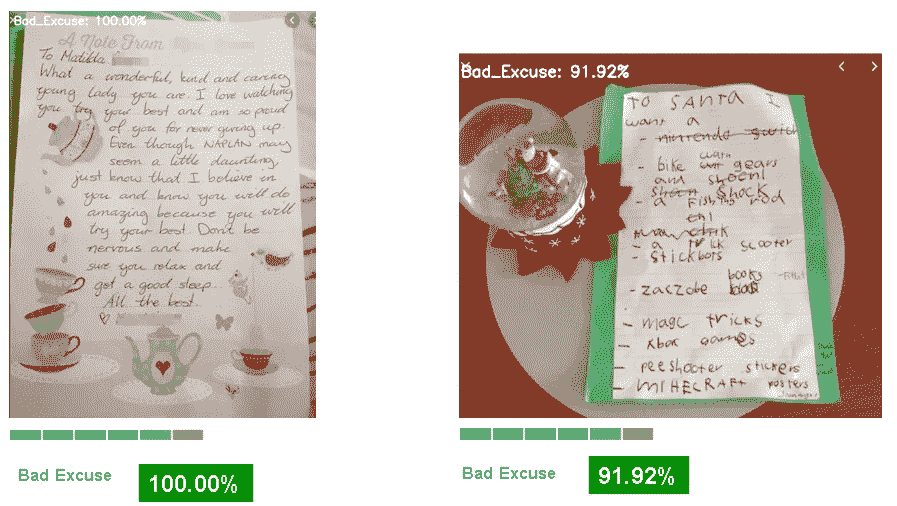 Bad_Excuse: 100.00%
A Note From
To Matilda
What a wonderful, kind and caring
young lady you are. I love watching
you try your best and am so proud
of you for never giving up.
Even though NAPLAN may
seem a little daunting,
just know that I believe in
you and know you will do
amazing because you will
try your best. Don't be
nervous and make
sure you relax and
get a good sleep.
All the best.
Bad Excuse
100.00%
Bad_Excuse: 91.92%
TO SANTA I
want a
- nintendo switch
with
- bike gears
and shock
- a fishing rod
- a trick scooter
- stickbots
books
- zaczate
- magc tricks
- xbox games
- peeshooter stickers
- MINECRAFT posters
Bad Excuse
91.92%